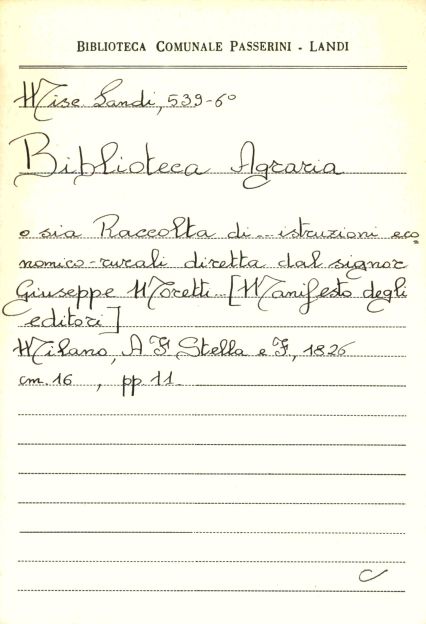 BIBLIOTECA COMUNALE PASSERINI - LANDI
Misc. Landi, 539-6°
Biblioteca Agraria
o sia Raccolta di... istruzioni eco=
nomico-rurali diretta dal signor
Giuseppe Moretti... [Manifesto degli
editori]
Milano, A F Stella e F, 1826
cm. 16 , pp. 11.
C